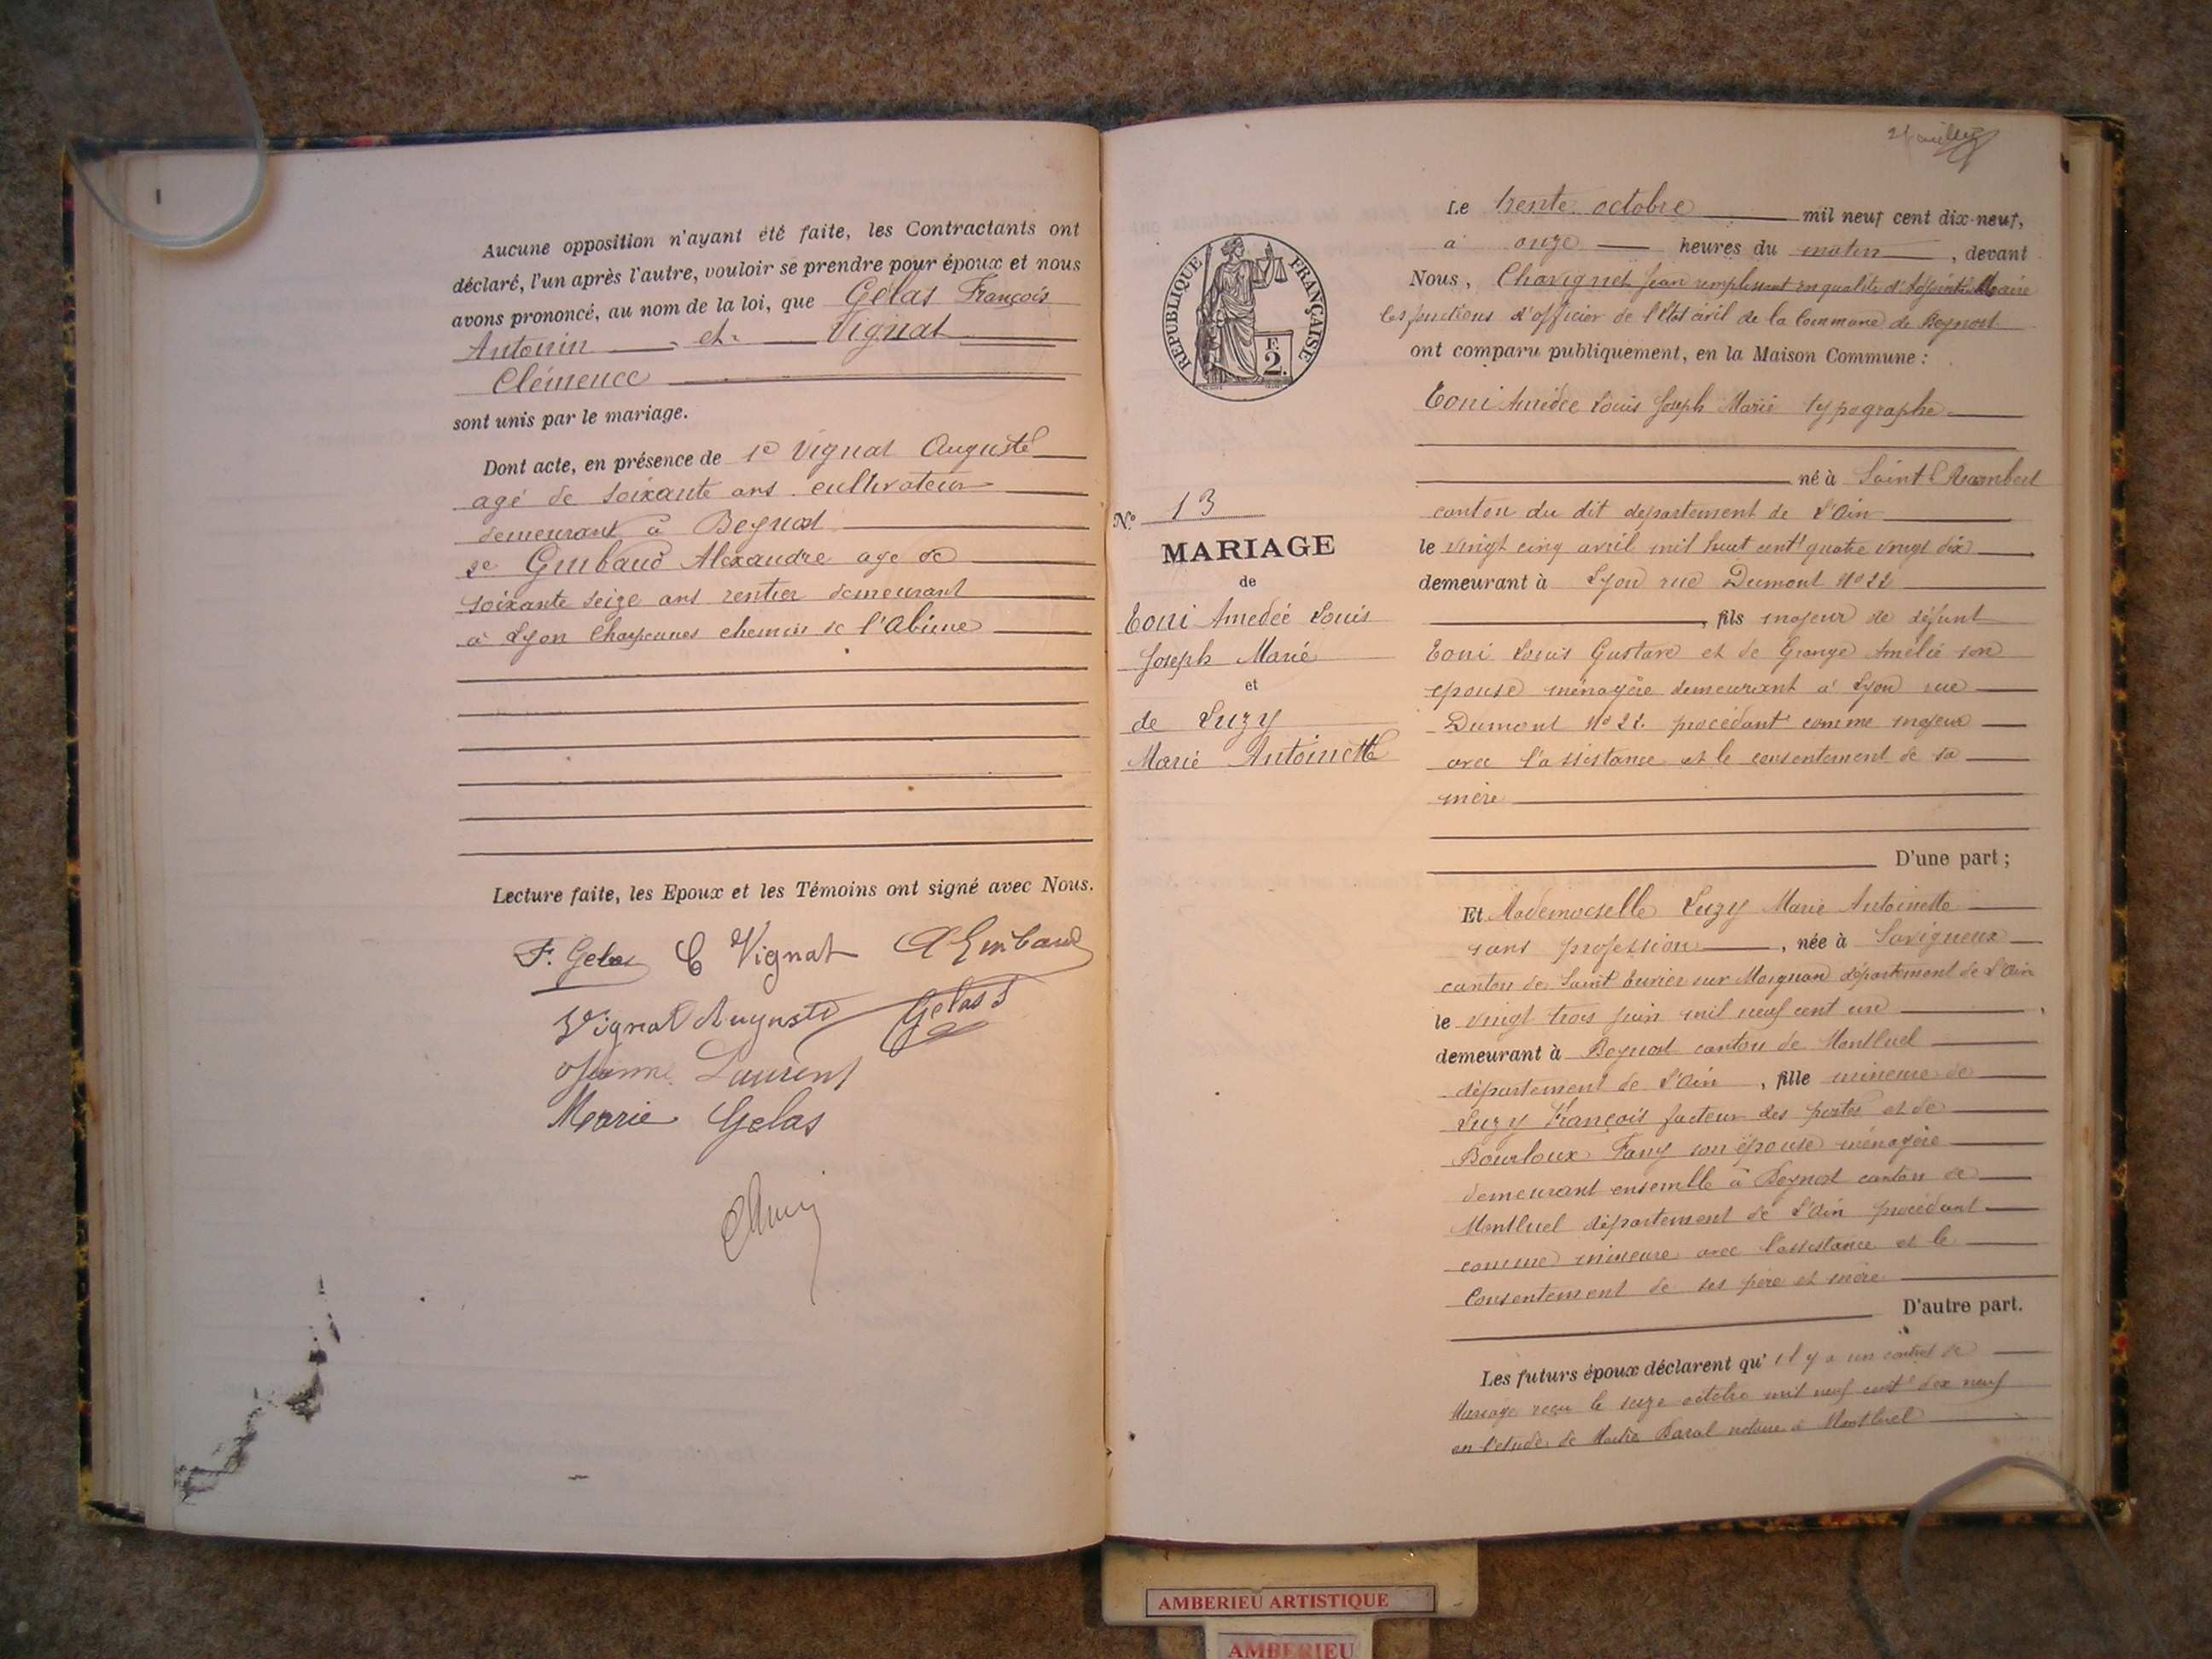 Aucune opposition n'ayant été faite, les Contractants ont
déclaré, l'un après l'autre, vouloir se prendre pour époux et nous
avons prononcé, au nom de la loi, que Gélas François
Antonin et Vignat
Clémence
sont unis par le mariage.
Dont acte, en présence de 1e Vignat Auguste
agé de soixante ans cultivateur
demeurant à Beynost
2e Guibaud Alexandre age de
soixante seize ans rentier demeurant
à Lyon Charpennes chemin de l'Abime
Lecture faite, les Epoux et les Témoins ont signé avec Nous.
F. Gelas C Vignat A Guibaud
Vignat Auguste Gelas J
Jeanne Laurent
Marie Gelas
RÉPUBLIQUE FRANÇAISE
F.
2.
No 13
MARIAGE
de
Toni Amedée Louis
Joseph Marie
et
de Luzy
Marie Antoinette
Le trente octobre mil neuf cent dix-neuf,
à onze heures du matin, devant
Nous, Chavignet Jean remplissant en qualité d'Adjoint au Maire
les fonctions d'officier de l'Etat civil de la Commune de Beynost
ont comparu publiquement, en la Maison Commune :
Toni Amédée Louis Joseph Marie typographe
né à Saint Rambert
canton du dit departement de l'Ain
le vingt cinq avril mil huit cent quatre vingt dix
demeurant à Lyon rue Dumont No 22
, fils majeur de défunt
Toni Louis Gustave et de Grange Amélie son
epouse ménagère demeurant à Lyon rue
Dumont No 22. procédant comme majeur
avec l'assistance et le consentement de sa
mère
D'une part ;
Et Mademoiselle Luzy Marie Antoinette
sans profession, née à Savigneux
canton de Saint Trivier sur Moignan département de l'Ain
le vingt trois juin mil neuf cent un
demeurant à Beynost canton de Montluel
département de l'Ain, fille mineure de
Luzy François facteur des postes et de
Bourloux Fany son épouse ménagère
demeurant ensemble à Beynost canton de
Montluel département de l'Ain procédant
comme mineure avec l'assistance et le
Consentement de ses père et mère
D'autre part.
Les futurs époux déclarent qu'il y a un contrat de
Mariage reçu le seize octobre mil neuf cent dix neuf
en l'etude de Maitre notaire à Montluel
AMBERIEU ARTISTIQUE
AMBERIEU